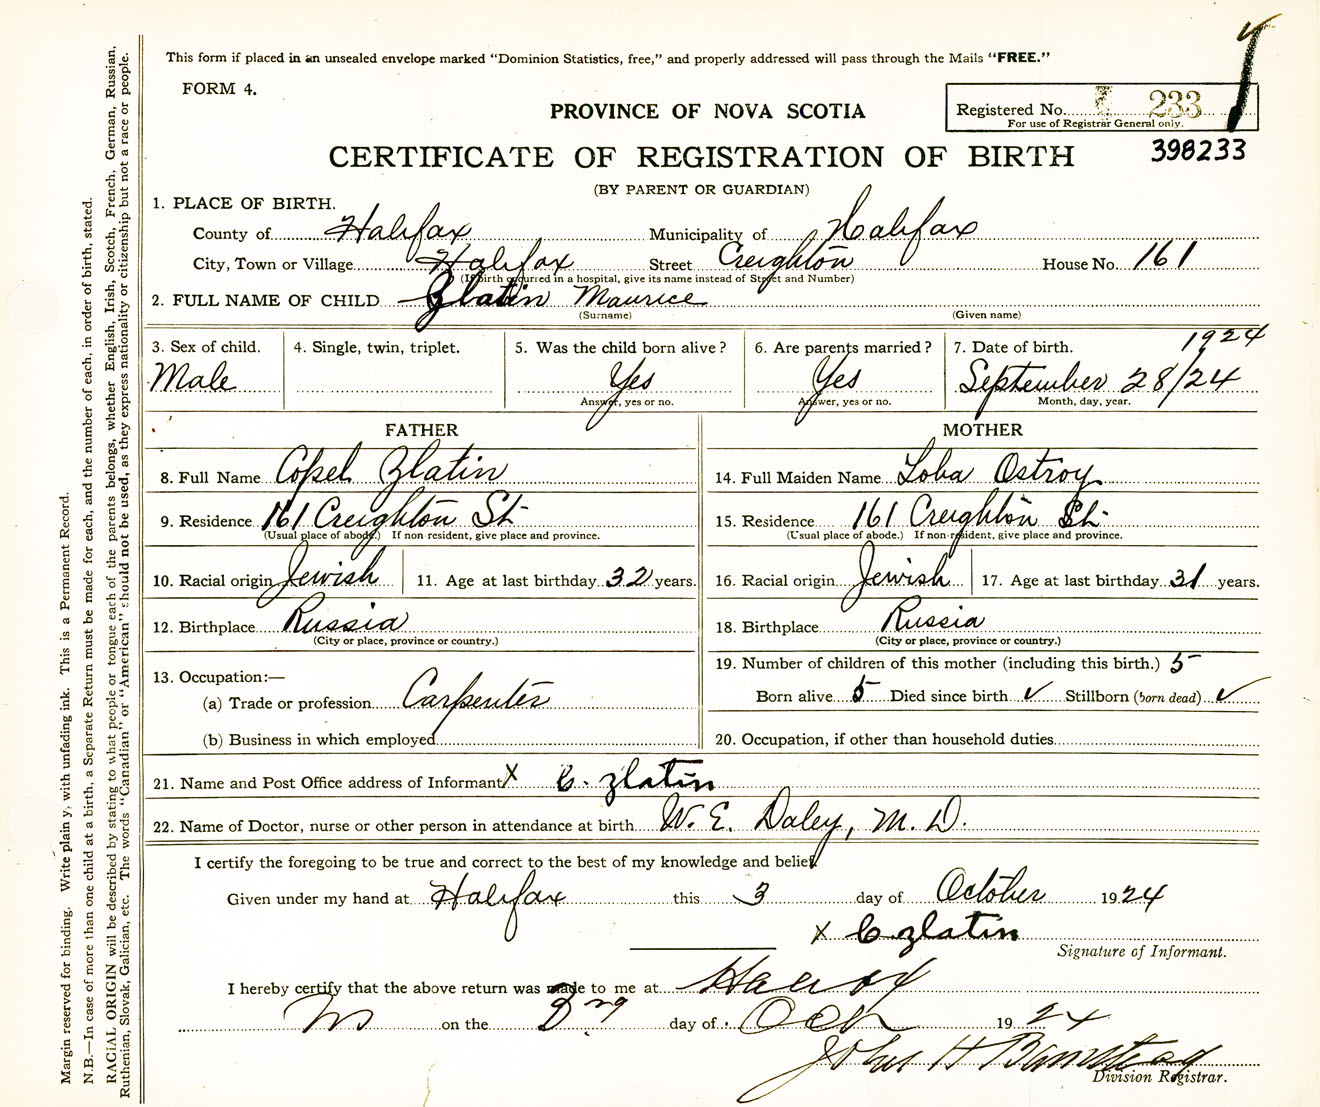 This form if placed in an unsealed envelope marked "Dominion Statistics, free," and properly addressed will pass through the Mails "FREE."
FORM 4.
PROVINCE OF NOVA SCOTIA
Registered No. 233
For use of Registrar General only.
CERTIFICATE OF REGISTRATION OF BIRTH
398233
(BY PARENT OR GUARDIAN)
1. PLACE OF BIRTH.
County of Halifax Municipality of Halifax
City, Town or Village Halifax Street Creighton House No. 161
(If birth occurred in a hospital, give its name instead of Street and Number)
2. FULL NAME OF CHILD Zlatin Maurice
(Surname) (Given name)
3. Sex of child. 4. Single, twin, triplet. 5. Was the child born alive? 6. Are parents married? 7. Date of birth. 1924
Male Yes Yes September 28/24
Answer, yes or no. Answer, yes or no. Month, day, year.
FATHER
8. Full Name Copel Zlatin
9. Residence 161 Creighton St
(Usual place of abode.) If non-resident, give place and province.
10. Racial origin Jewish 11. Age at last birthday 32 years.
12. Birthplace Russia
(City or place, province or country.)
13. Occupation:—
(a) Trade or profession Carpenter
(b) Business in which employed
MOTHER
14. Full Maiden Name Loba Ostroy
15. Residence 161 Creighton St.
(Usual place of abode.) If non-resident, give place and province.
16. Racial origin Jewish 17. Age at last birthday 31 years.
18. Birthplace Russia
(City or place, province or country.)
19. Number of children of this mother (including this birth.) 5
Born alive 5 Died since birth ✓ Stillborn (born dead) ✓
20. Occupation, if other than household duties
21. Name and Post Office address of Informant X C. Zlatin
22. Name of Doctor, nurse or other person in attendance at birth W. E. Daley, M. D.
I certify the foregoing to be true and correct to the best of my knowledge and belief.
Given under my hand at Halifax this 3 day of October 1924
X C. Zlatin
Signature of Informant.
I hereby certify that the above return was made to me at
on the 3rd day of Oct 1924
John H
Division Registrar.
Margin reserved for binding. Write plainly, with unfading ink. This is a Permanent Record.
N.B.—In case of more than one child at a birth, a Separate Return must be made for each, and the number of each, in order of birth, stated.
RACIAL ORIGIN will be described by stating to what people or tongue each of the parents belongs, whether English, Irish, Scotch, French, German, Russian,
Ruthenian, Slovak, Galician, etc. The words "Canadian" or "American" should not be used, as they express nationality or citizenship but not a race or people.